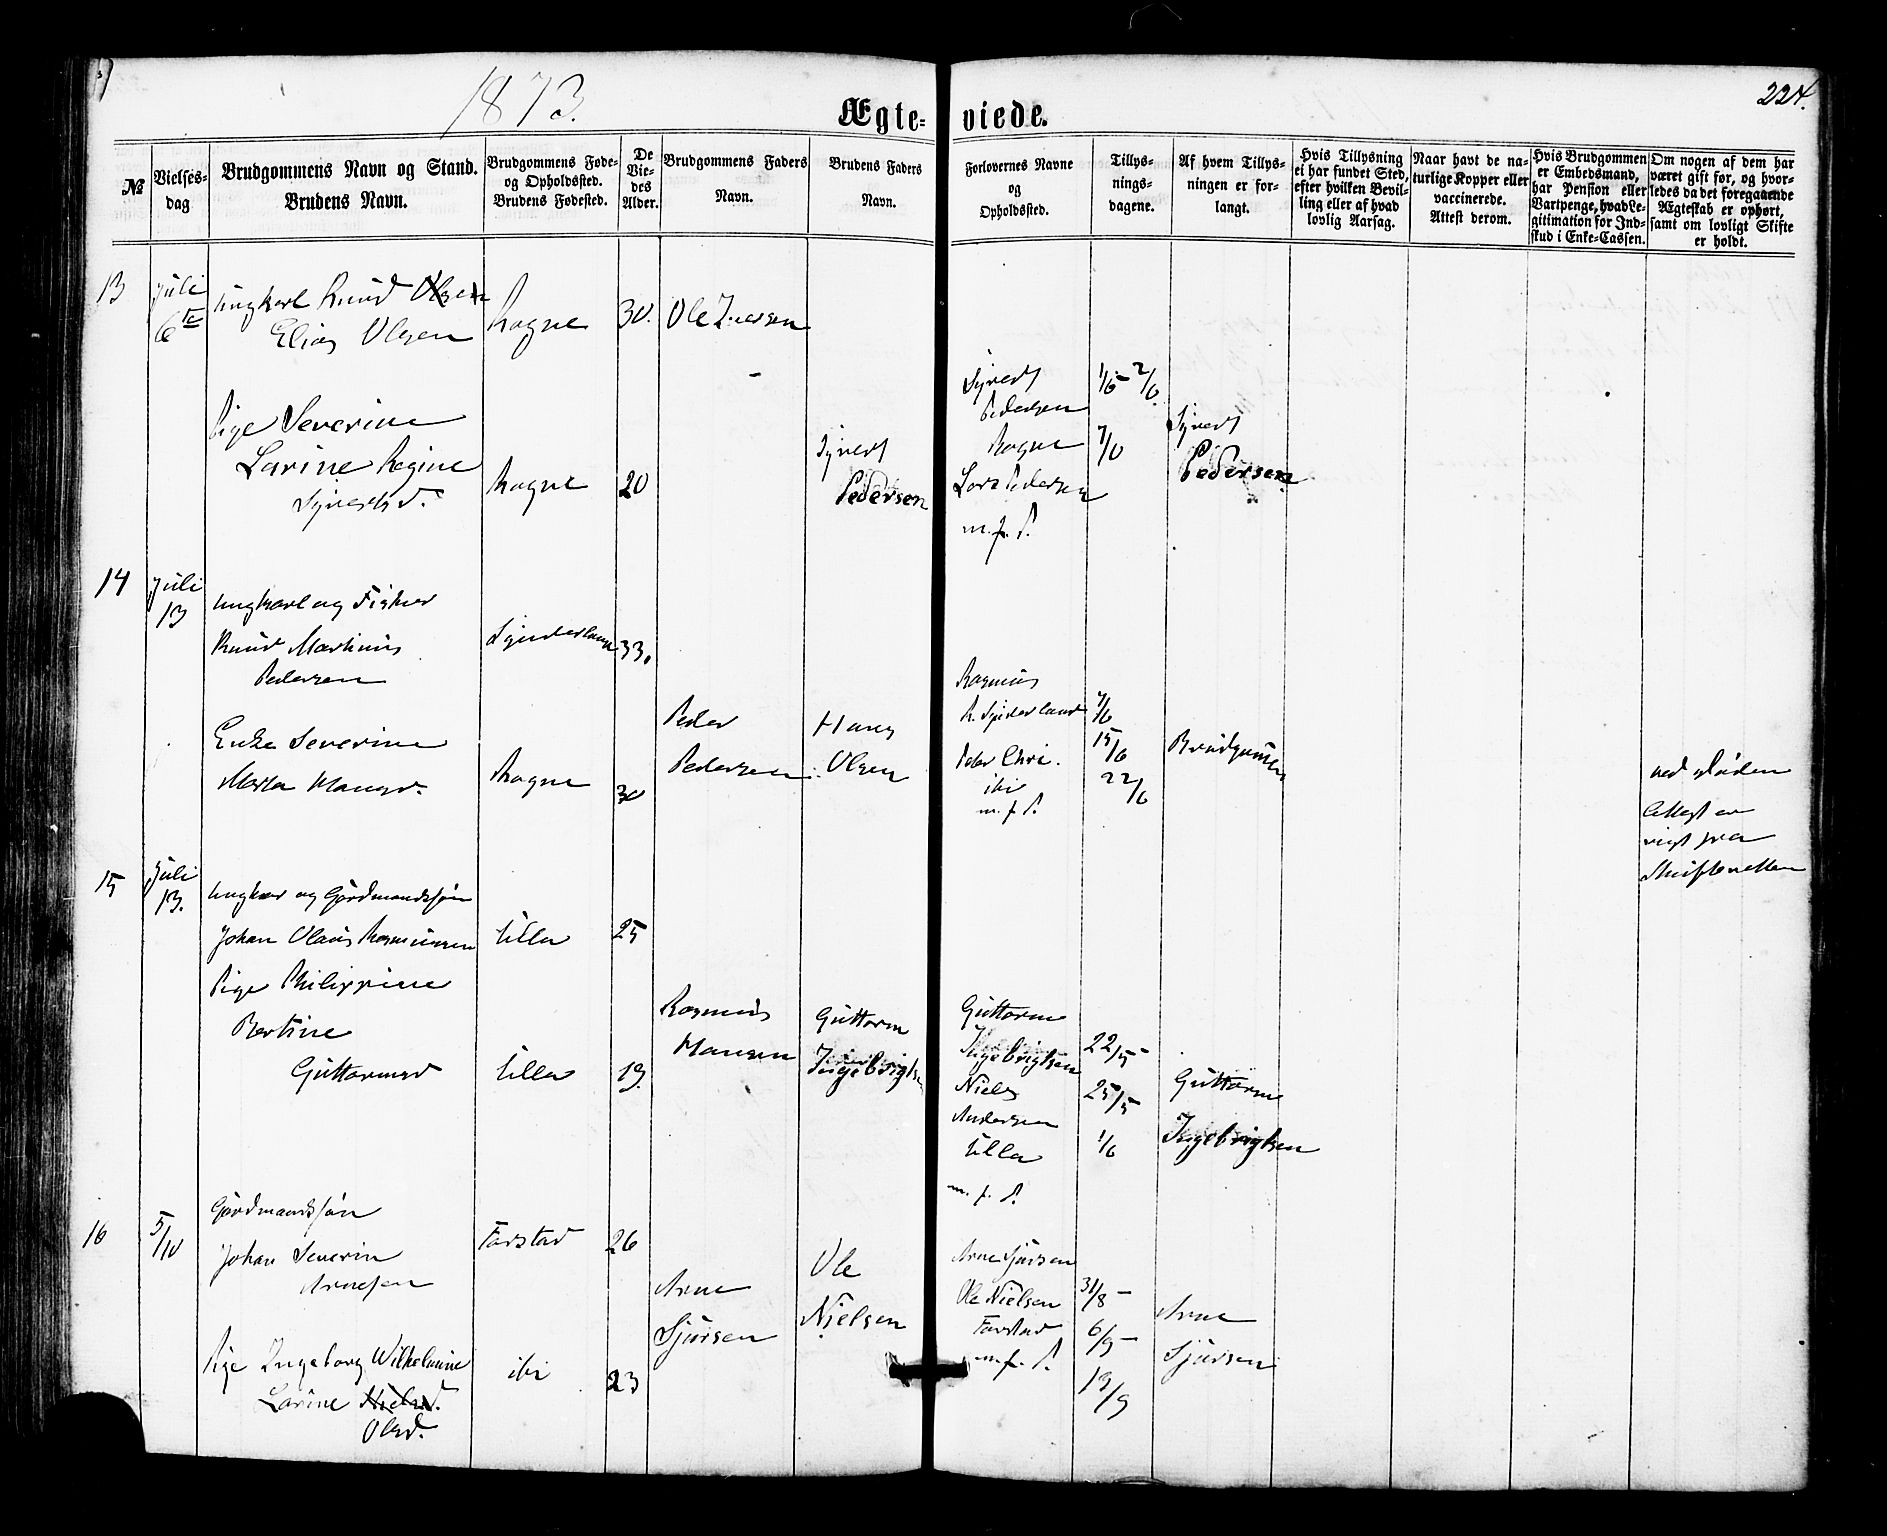 1873.
Ægte-
viede.
224.
№
Vielses-
dag
Brudgommens Navn og Stand.
Brudens Navn.
Brudgommens Føde-
og Opholdssted.
Brudens Fødested.
De
Vie-
des
Alder.
Brudgommens Faders
Navn.
Brudens Faders
Navn.
Forlovernes Navne
og
Opholdssted.
Tillys-
nings-
dagene.
Af hvem Tillys-
ningen er for-
langt.
Hvis Tillysning
ei har fundet Sted,
efter hvilken Bevil-
ling eller af hvad
lovlig Aarsag.
Naar havt de na-
turlige Kopper eller
vaccinerede.
Attest derom.
Hvis Brudgommen
er Embedsmand,
har Pension eller
Vartpenge, hvad Le-
gitimation for Ind-
skud i Enke-Cassen.
Om nogen af dem har
været gift før, og hvor-
ledes da det foregaaende
Ægteskab er ophørt,
samt om lovligt Skifte
er holdt.
13
Juli
6te
Ungkarl Knud Olsen
Elias Olsen
Rogne
30.
Ole Iversen
Pige Severine
Larine Regine
Syvertsd.
Rogne
20
Syvert
Pedersen
Syvert
Pedersen
Rogne
Lars Pedersen
m. f. P.
1/6 - 2/6
7/6
Syvert
Pedersen
14
Juli
13
Ungkarl og Fisker
Knud Martinus
Pedersen
Synderland
33.
Enke Severine
Marta Hansd.
Rogne
30
Peder
Pedersen
Hans
Olsen
Rasmus
R. Synderland
Peder Chri.
ibi
m. f. P.
7/6
15/6
22/6
Brudgommen
ved Døden
Attest er
vist fra
Skifteretten
15
Juli
13.
Ungkar og Gårdmandssøn
Johan Olaus Rasmussen
Ulla
25
Pige Philippine
Bertine
Guttormsd
Ulla
19.
Rasmus
Hansen
Guttorm
Ingebrigtsen
Guttorm
Ingebrigtsen
Niels
Andersen
Ulla
m. f. P.
22/5 -
25/5
1/6
Guttorm
Ingebrigtsen
16
5/10
Gårdmandssøn
Johan Severin
Arnesen
Farstad
26
Pige Ingeborg Wilhelmine
Larine Nielsd.
Olsd.
ibi
23
Arne
Sjursen
Ole
Nielsen
Arne Sjursen
Ole Nielsen
Farstad
m. f. P.
31/8 -
6/9 -
13/9
Arne
Sjursen